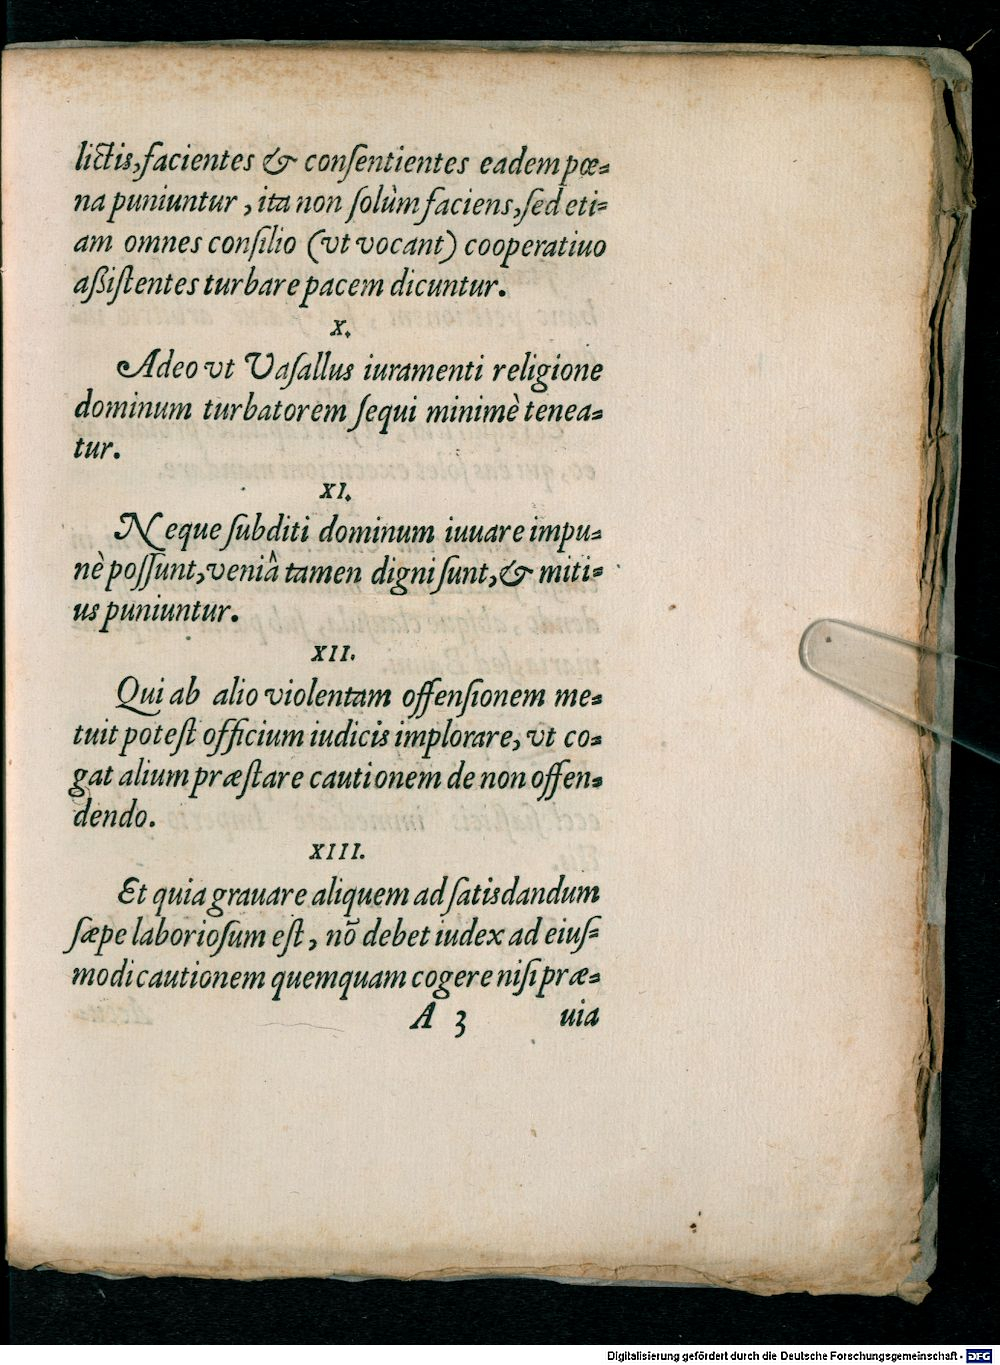 lictis, facientes & conſentientes eadem pœ=
na puniuntur, ita non ſolùm faciens, ſed eti=
am omnes conſilio (vt vocant) cooperatiuo
aßiſtentes turbare pacem dicuntur.
X.
Adeo vt Vaſallus iuramenti religione
dominum turbatorem ſequi minimè tenea=
tur.
XI.
Neque ſubditi dominum iuuare impu=
nè poſſunt, veniâ tamen digni ſunt, & miti=
us puniuntur.
XII.
Qui ab alio violentam offenſionem me=
tuit poteſt officium iudicis implorare, vt co=
gat alium præſtare cautionem de non offen=
dendo.
XIII.
Et quia grauare aliquem ad ſatisdandum
ſæpe laborioſum eſt, nō debet iudex ad eiuſ=
modi cautionem quemquam cogere niſi præ=
A 3 uia
Digitalisierung gefördert durch die Deutsche Forschungsgemeinschaft - DFG